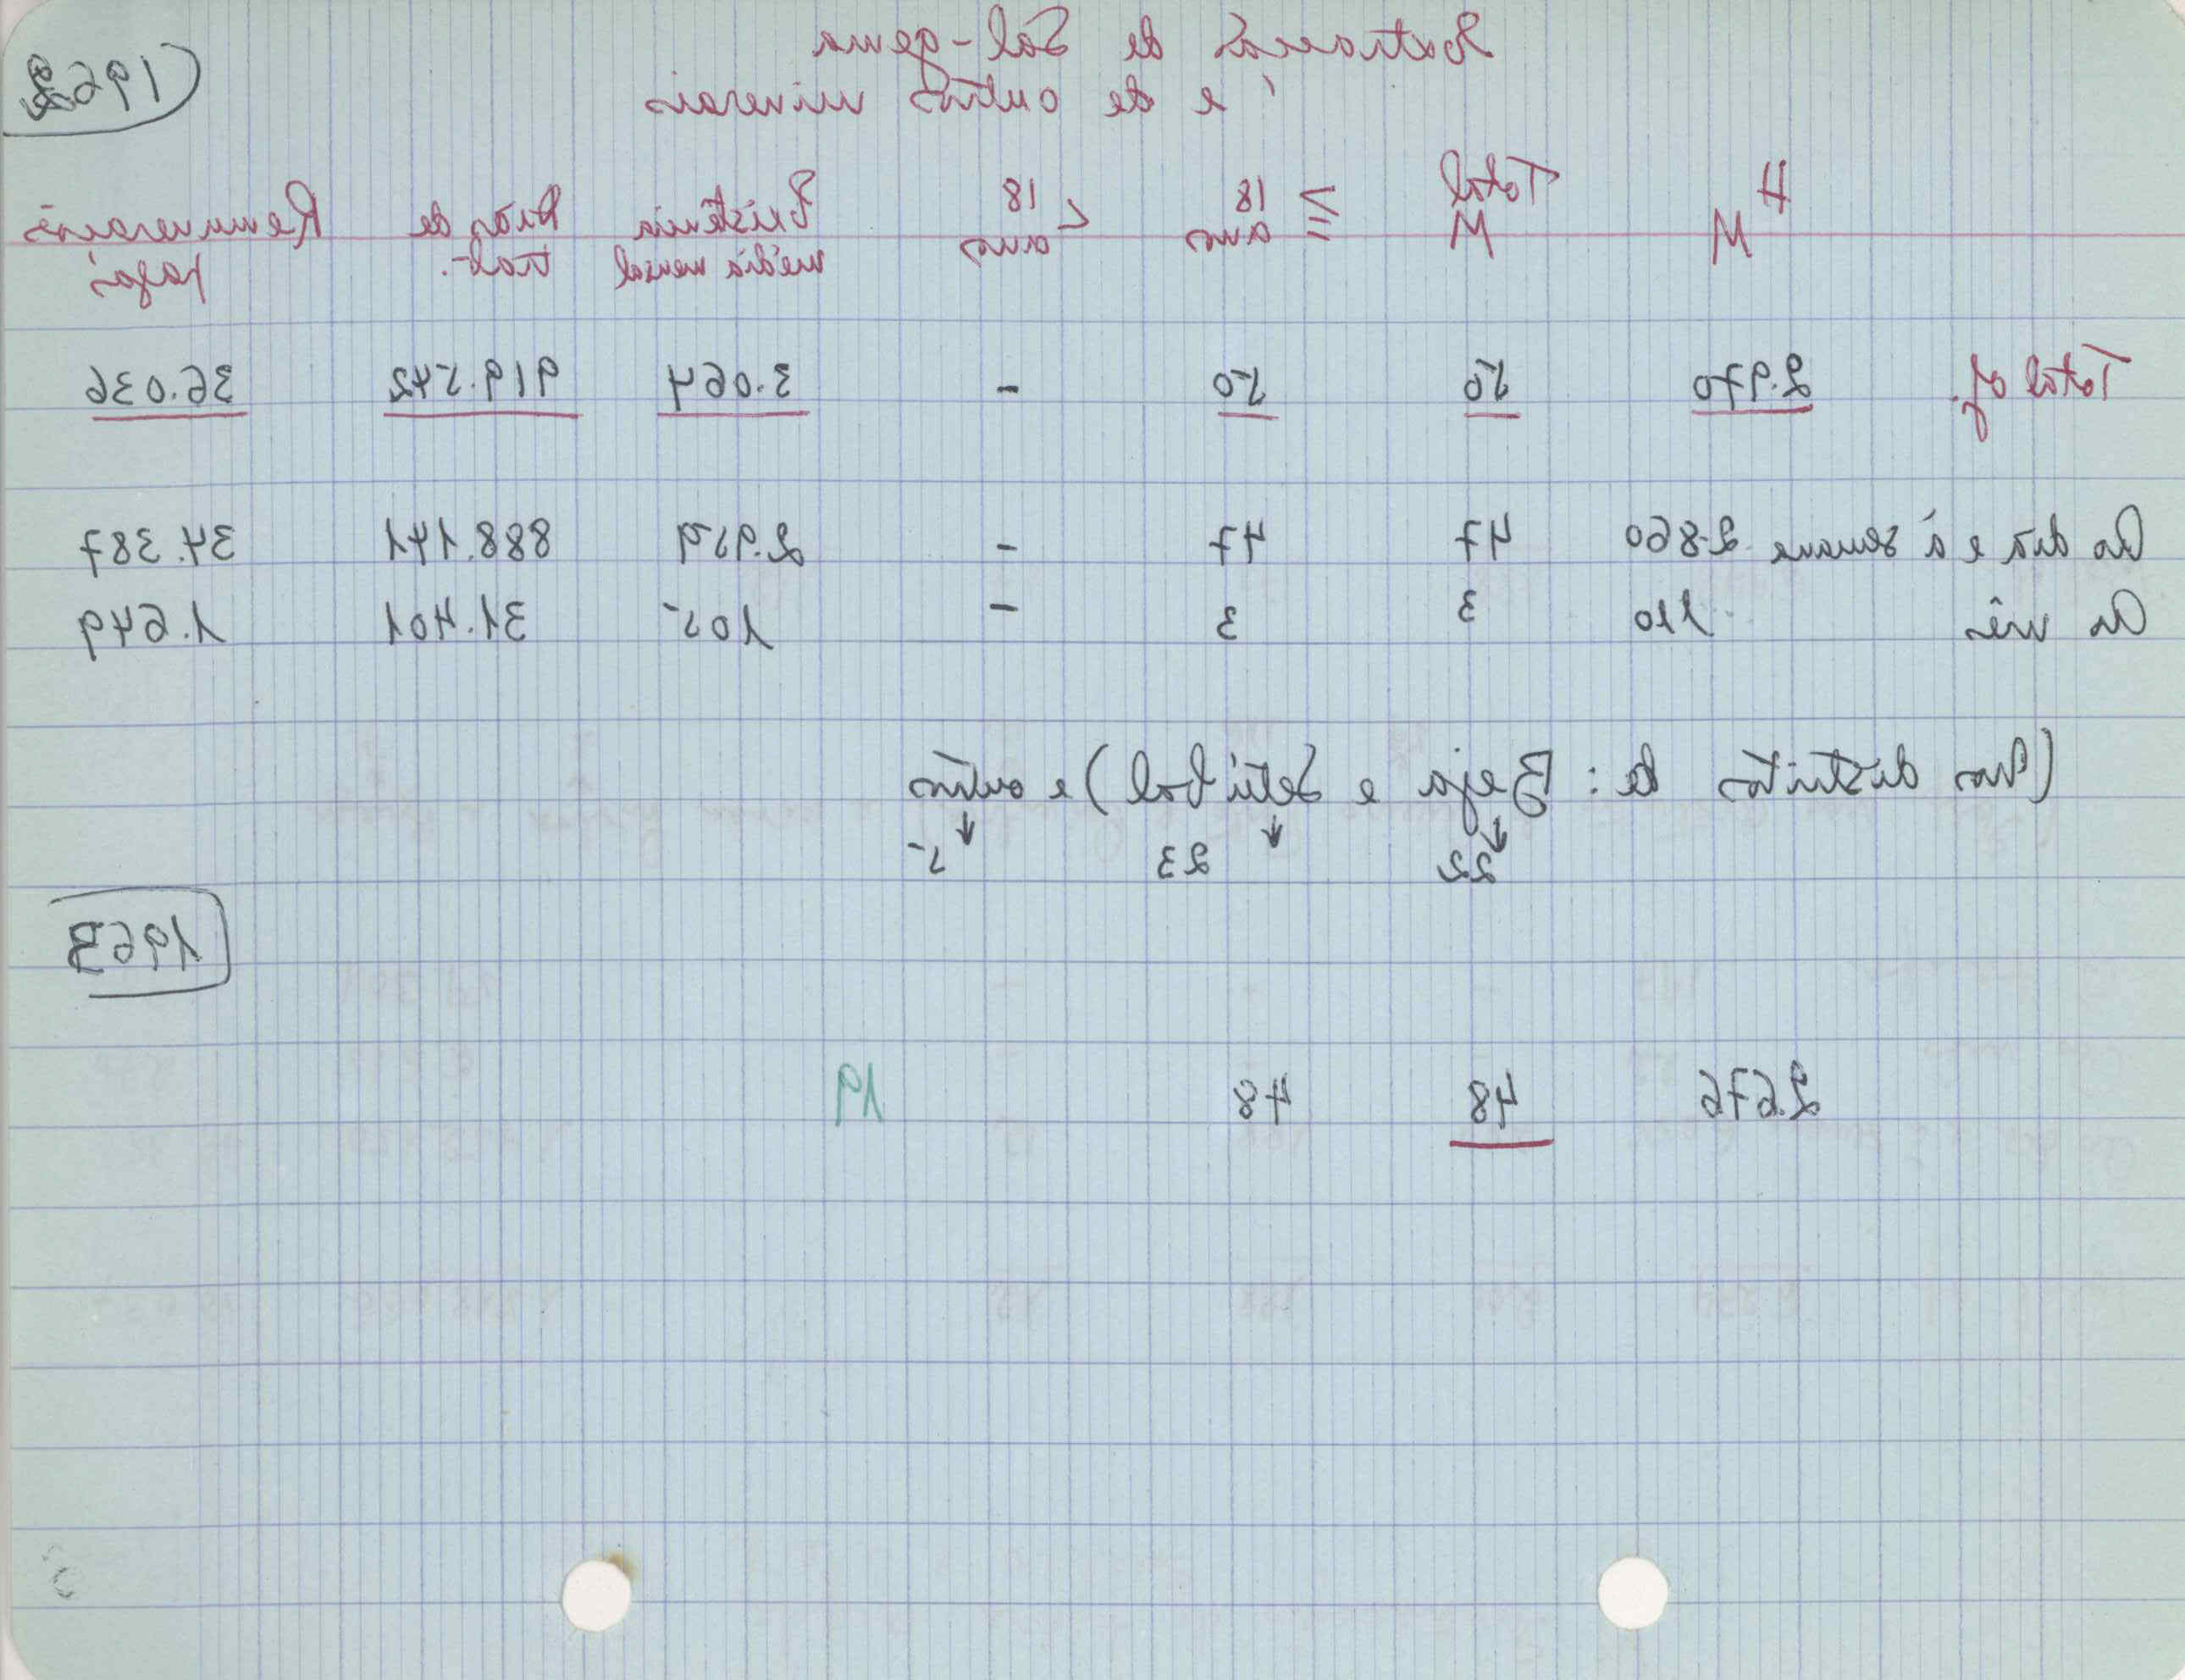 Extracção de Sal-gema
e de outros minerais
(1962
H M Total M ≥ 18 anos < 18 anos Existência média mensal Dias de trab. Remunerações pagas
Total of. 2.970 50 50 - 3.064 919.542 36.036
Ao dia e à semana 2.860 47 47 - 2.959 888.141 34.387
Ao mês 110 3 3 - 105 31.401 1.649
(Nos distritos de: Beja e Setúbal) e outros
↓ ↓ ↓
22 23 5
1963
2.676 48 48 19